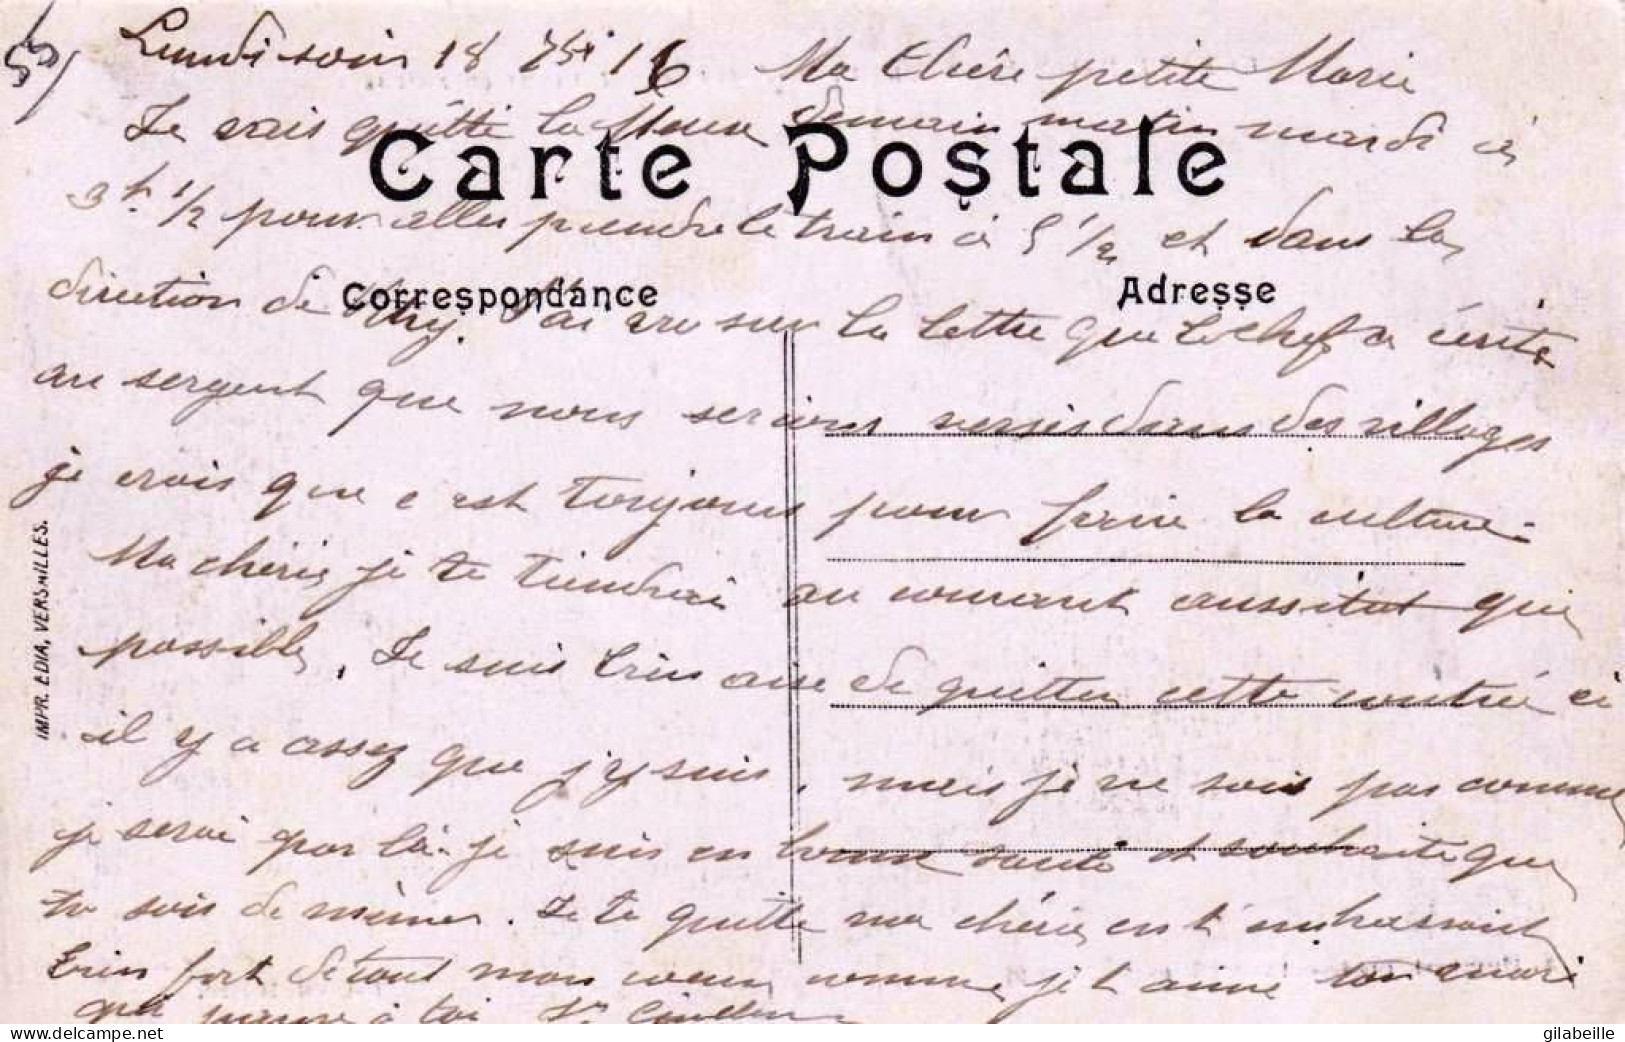 Lundi soir 18 7bre 16. Ma Chère petite Marie
Je vais quitté la Meuse demain matin mardi à
Carte Postale
3h 1/2 pour aller prendre le train à 5 1/2 et dans la
Correspondance
Adresse
direction de J'ai vu sur la lettre que le chef a écrite
au sergent que nous serions versés dans des villages
je crois que c'est toujours pour faire la culture.
Ma chérie je te tiendrai au courant aussitot que
possible. Je suis très aise de quitter cette contrée ci
il y a assez que j'y suis, mais je ne sais pas comme
je serai par là. je suis en bonne santé et souhaite que
tu sois de même. Je te quitte ma chérie en t'embrassant
bien fort de tout mon coeur comme je t'aime ton mari
qui pense à toi
IMPR. EDIA, VERSAILLES.
www.delcampe.net
gilabeille